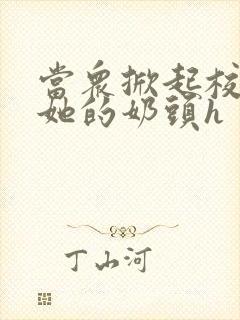 當眾掀起校
她的奶頭h
丁山河